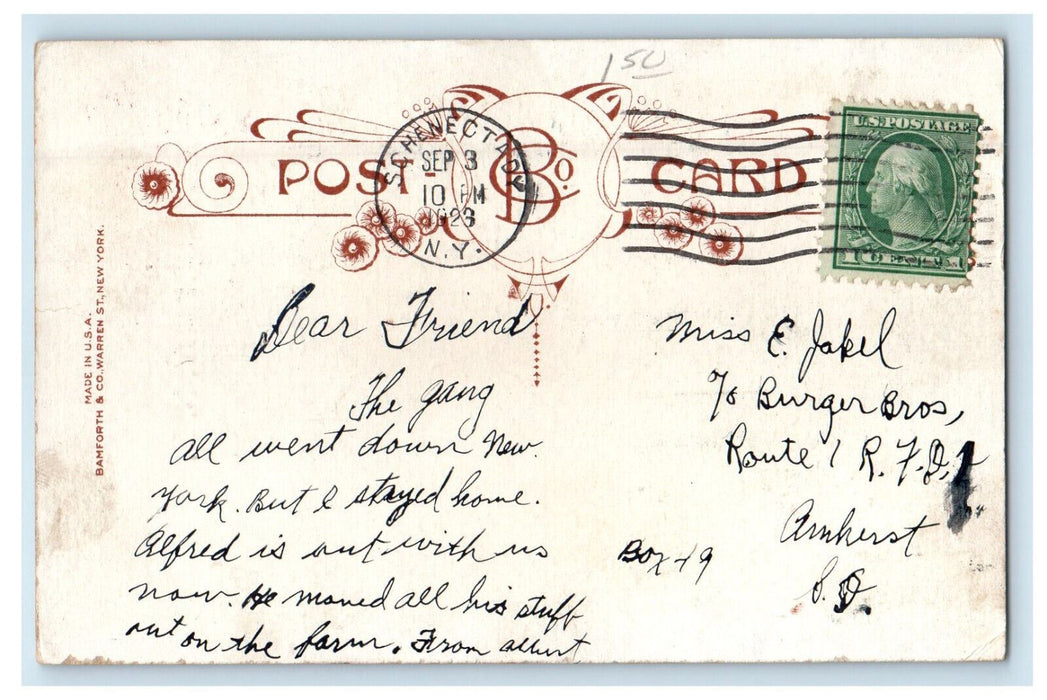 1 50
POST CARD
B & Co.
SCHENECTADY
SEP 3
10 PM
1923
N.Y.
U.S. POSTAGE
1 CENT 1
MADE IN U.S.A.
BAMFORTH & CO. WARREN ST., NEW YORK.
Dear Friend
The gang
all went down New.
York. But I stayed home.
Alfred is out with us
now. He moved all his stuff
out on the farm. From albert
Miss E. Jakel
℅ Burger Bros,
Route 1 R.F.D.
Amherst
S. D.
Box 19